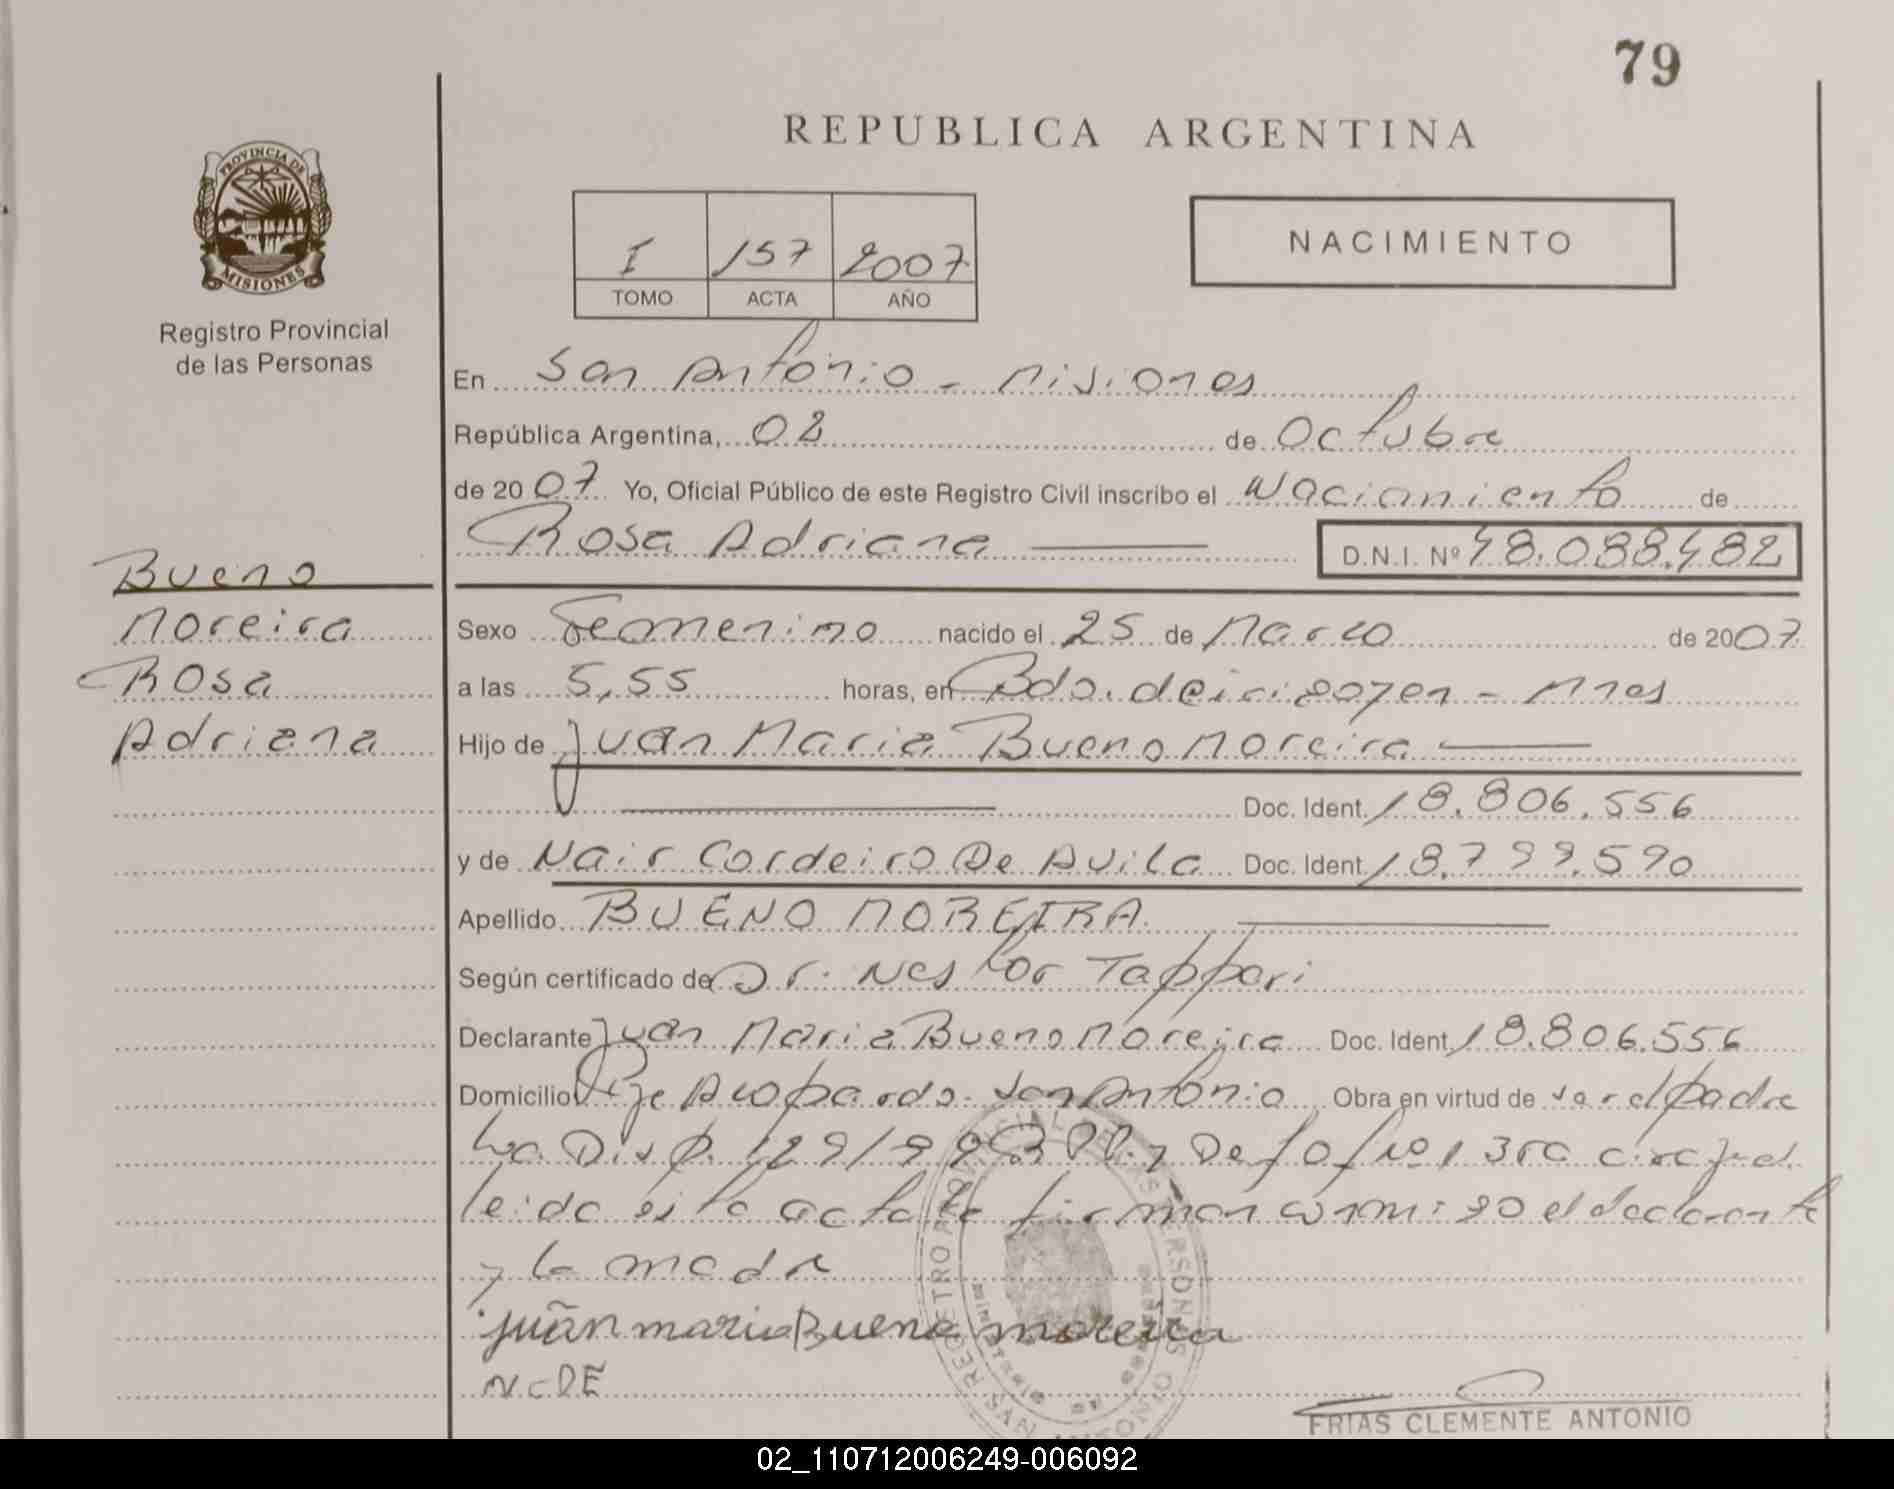 79
REPUBLICA ARGENTINA
PROVINCIA DE
MISIONES
Registro Provincial
de las Personas
I 157 2007
TOMO ACTA AÑO
NACIMIENTO
En San Antonio - Misiones
República Argentina, 02 de Octubre
de 2007 Yo, Oficial Público de este Registro Civil inscribo el Nacimiento de
Rosa Adriana D.N.I. Nº 48.088.482
Bueno
Moreira
Rosa
Adriana
Sexo Femenino nacido el 25 de Marzo de 2007
a las 5,55 horas, en Bdo. de Irigoyen - Mnes
Hijo de Juan Maria Bueno Moreira
Doc. Ident. 18.806.556
y de Nair Cordeiro De Avila Doc. Ident. 18.799.590
Apellido BUENO MOREIRA
Según certificado de Dr. Nestor Tappari
Declarante Juan Maria Bueno Moreira Doc. Ident. 18.806.556
Domicilio Pje Acopardo. San Antonio Obra en virtud de ser el padre
Disp. 129/99 y Def Of Nº 1 3ra circ jud.
leida esta acta la firman conmigo el declarante
y la madre
juan maria Bueno moreira
N.C DE
REGISTRO PROVINCIAL DE LAS PERSONAS
SAN ANTONIO
FRIAS CLEMENTE ANTONIO
02_110712006249-006092